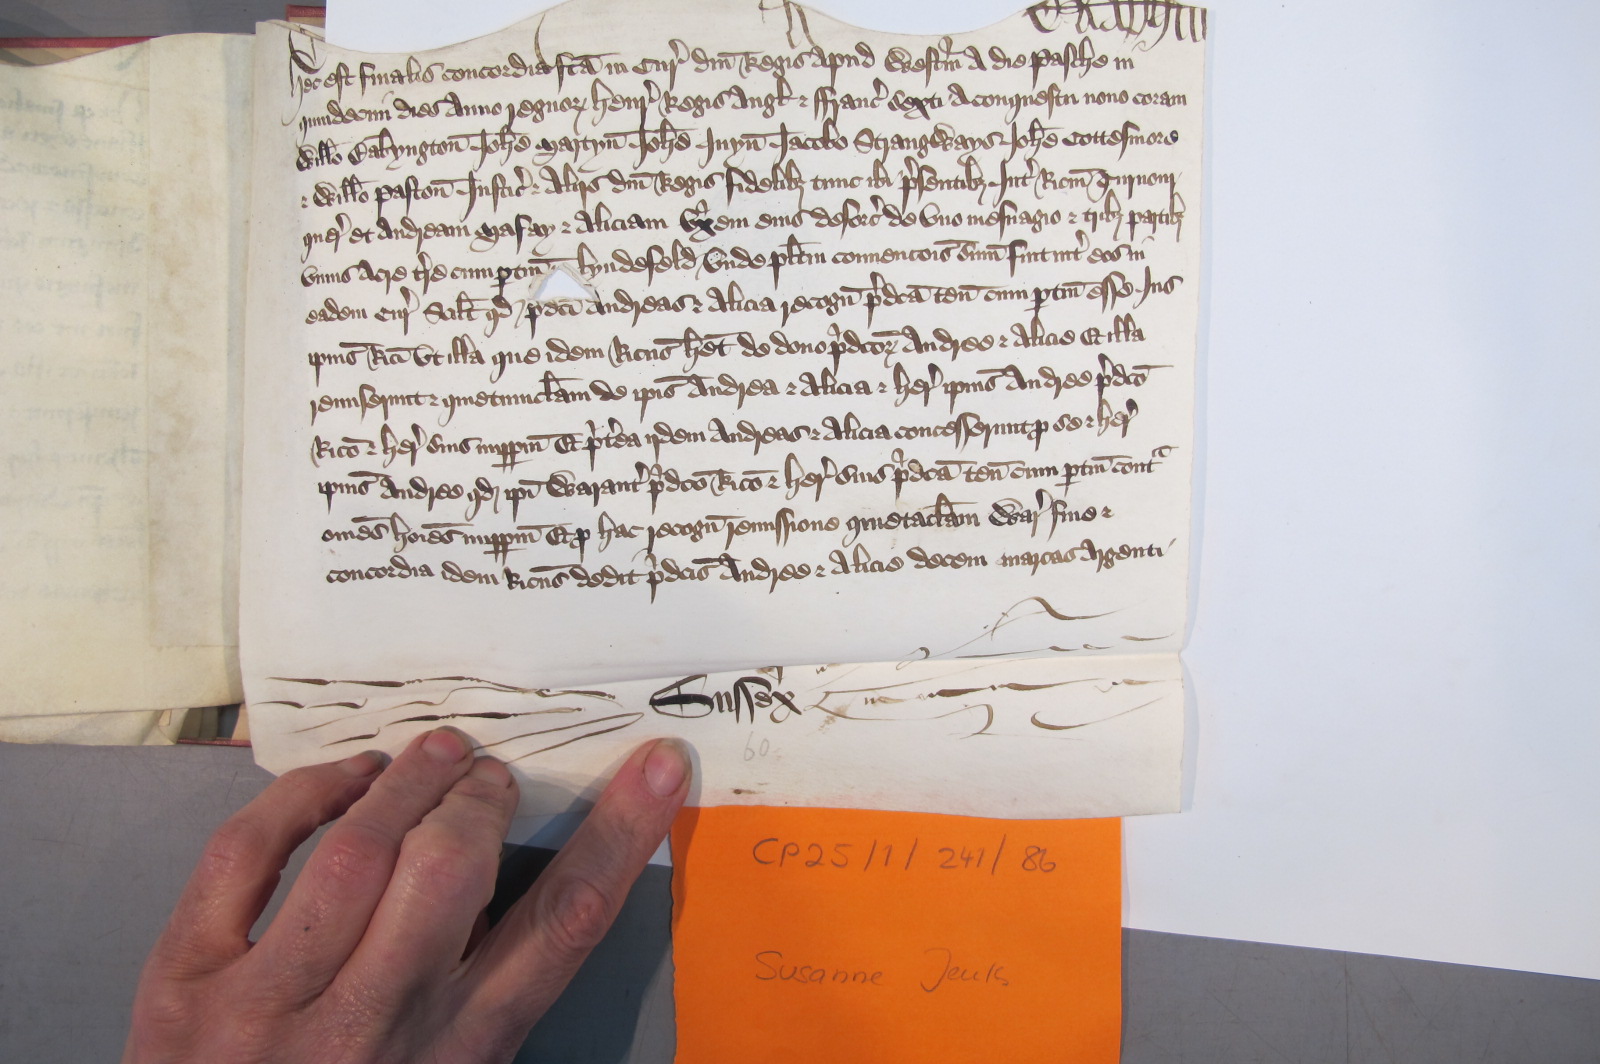 Hec est finalis concordia fcā in Cur' dn̄i Regis apud Westm̄ A die Pasche in
quindecim dies Anno regnoꝝ Henr' Regis Angl' ⁊ ffranc' sexti A conquestu nono coram
Willo Babyngton̄ Joh̄e Martyn̄ Joh̄e Juyn̄ Jacobo Strangways Joh̄e Cottesmore
⁊ Willo Paston̄ Justic' ⁊ Alijs dn̄i Regis fidelibꝫ tunc ibi p'sentibꝫ Int' Ricm̄
quer' et Andream Masay ⁊ Aliciam Vx'em eius deforc' de Vno mesuagio ⁊ tribꝫ partibꝫ
Vnius acre t're cum ptin̄ lyndefeld Vnde pl̄itm conuencōis sum̄ fuit int' eos in
eadem Cur' Scilt qd p'dc̄i Andreas ⁊ Alicia recogn̄ p'dcā ten̄ cum ptin̄ esse Jus
ip̄ius Rici Vt illa que idem Ricus h̄et de dono p'dcoꝝ Andree ⁊ Alicie Et illa
remiserunt ⁊ quietumclam̄ de ip̄is Andrea ⁊ Alicia ⁊ her' ip̄ius Andree p'dc̄o
Rico ⁊ her' suis imppm̄ Et p't'ea ijdem Andreas ⁊ Alicia concesserunt ꝓ se ⁊ her'
ip̄ius Andree qd ip̄i Warant' p'dc̄o Rico ⁊ her' suis p'dcā ten̄ cum ptin̄ contᵃ
om̄es hōies imppm̄ Et ꝓ hac recogn̄ remissione quietaclam̄ War' fine ⁊
concordia idem Ricus dedit p'dc̄is Andree ⁊ Alicie decem marcas Argenti
Sussex
60
CP25/1/241/86
Susanne Jenks